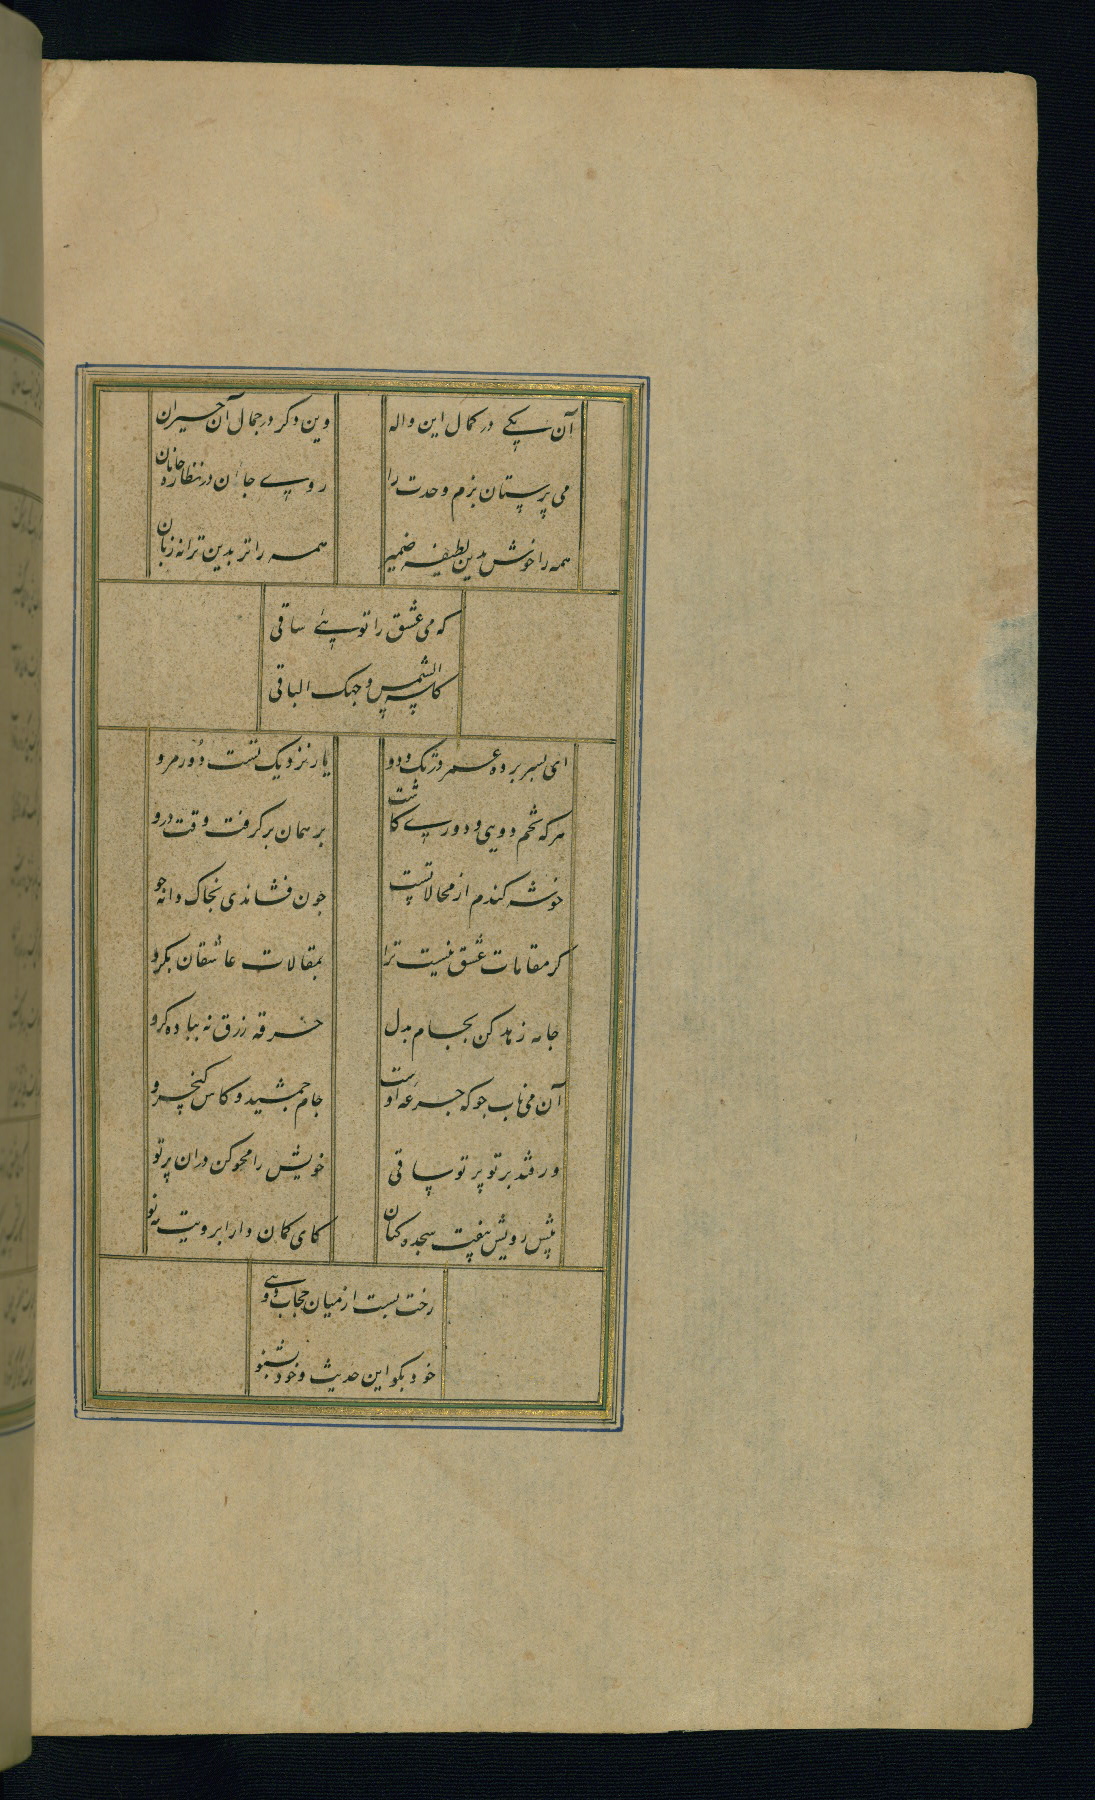 آن یکے در کمال این واله
وین دکر در جمال آن حیران
می پرستان بزم وحدت را
روے جان در نظاره جانان
همه را خوش بدین لطیفه ضمیر
همه را تر بدین ترانه زبان
که می عشق را توئے ساقی
کاسه الشمس وجهک الباقی
ای بسر برده عمر در تک ودو
یار نزدیک تست دور مرو
هر که تخم دویی و دورے کاشت
بر همان بر کرفت وقت درو
خوشه کندم از محالاتست
جون فشاندی بخاک دانه جو
کر مقامات عشق نیست ترا
بمقالات عاشقان بکرو
جامه زهد کن بجام بدل
خرقه زرق نه بباده کرو
آن می ناب جو که جرعه اوست
جام جمشید و کاس کیخسرو
ور فتد بر تو پرتو ساقی
خویش را محو کن دران پرتو
پیش رویش بیفت سجده کنان
کای کمان دار ابرویت مه نو
رخت بست از میان حجاب دوے
خود بکو این حدیث وخود بشنو